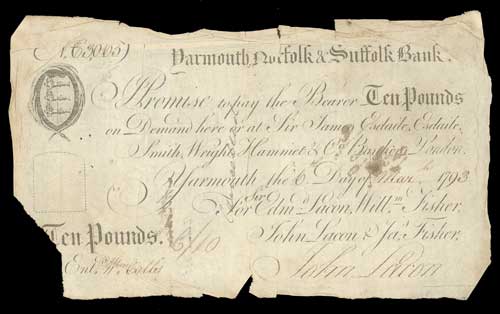 Yarmouth, Norfolk & Suffolk Bank.
I Promise to pay the Bearer Ten Pounds
on Demand here or at Sir James Esdaile, Esdaile,
Smith, Wright, Hammet & Co. Bankers London.
Yarmouth the 6 Day of Mar. 1793
For Sir Edmd. Lacon, Willm. Fisher,
John Lacon & Jas. Fisher.
Ten Pounds. 6/10
Entd. John Lacon